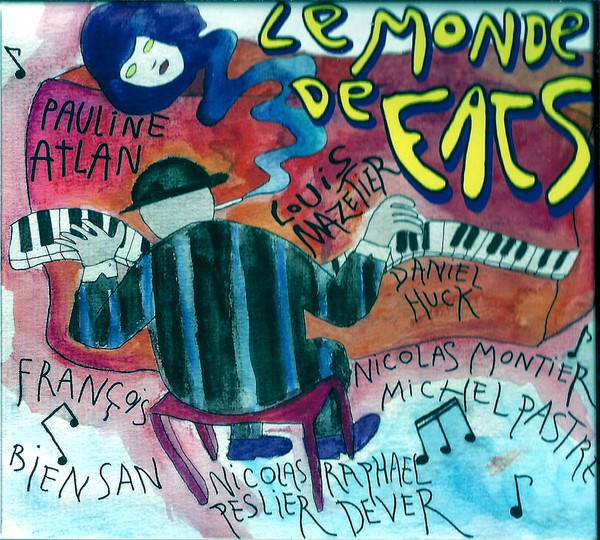 Le MONDe
De FATS
PAULINE
ATLAN
LOUIS
MAZETIER
DANIEL
HUCK
FRANÇOIS
BIENSAN
NICOLAS MONTIER
MICHEL PASTRE
NICOLAS
PESLIER
RAPHAEL
DEVER